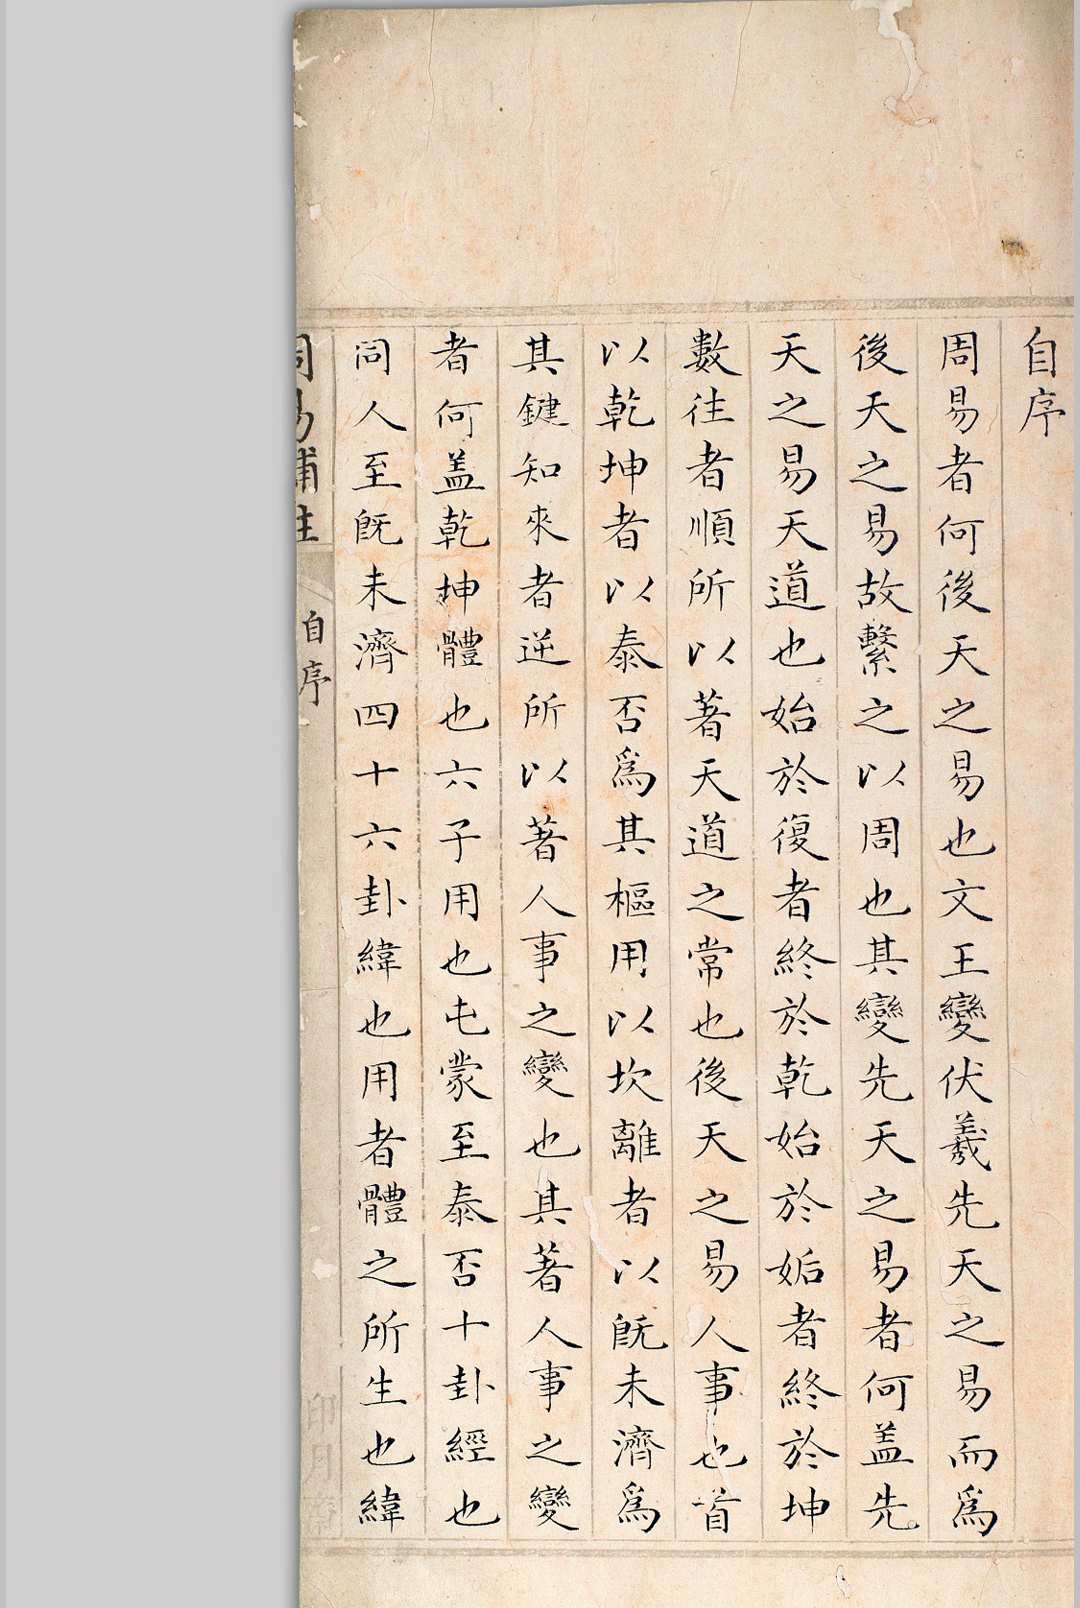 自序
周易者何後天之易也文王變伏羲先天之易而爲
後天之易故繫之以周也其變先天之易者何盖先
天之易天道也始於復者終於乾始於姤者終於坤
數往者順所以著天道之常也後天之易人事也首
以乾坤者以泰否爲其樞用以坎離者以旣未濟爲
其鍵知來者逆所以著人事之變也其著人事之變
者何盖乾坤體也六子用也屯蒙至泰否十卦經也
同人至旣未濟四十六卦緯也用者體之所生也緯
周易補註
自序